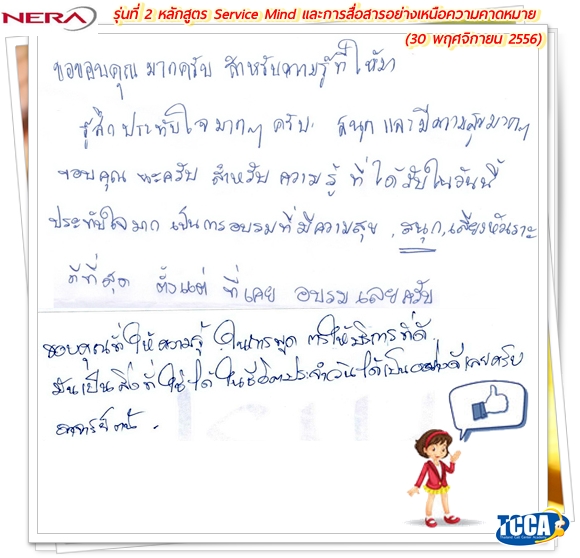 NERA
รุ่นที่ 2 หลักสูตร Service Mind และการสื่อสารอย่างเหนือความคาดหมาย
(30 พฤศจิกายน 2556)
ขอขอบคุณ มากครับ สำหรับความรู้ที่ให้มา
รู้สึกประทับใจมากๆ ครับ สนุก และมีความสุขมากๆ
ขอบคุณ นะครับ สำหรับ ความรู้ ที่ได้รับในวันนี้
ประทับใจมาก เป็นการอบรมที่มีความสุข, สนุก, เสียงหัวเราะ
ดีที่สุด ตั้งแต่ ที่เคย อบรม เลยครับ
ขอบคุณที่ให้ความรู้ ในการพูด การให้บริการที่ดี
มันเป็นสิ่งที่ใช้ได้ในชีวิตประจำวันได้เป็นอย่างดีเลยครับ
TCCA
Thailand Call Center Academy